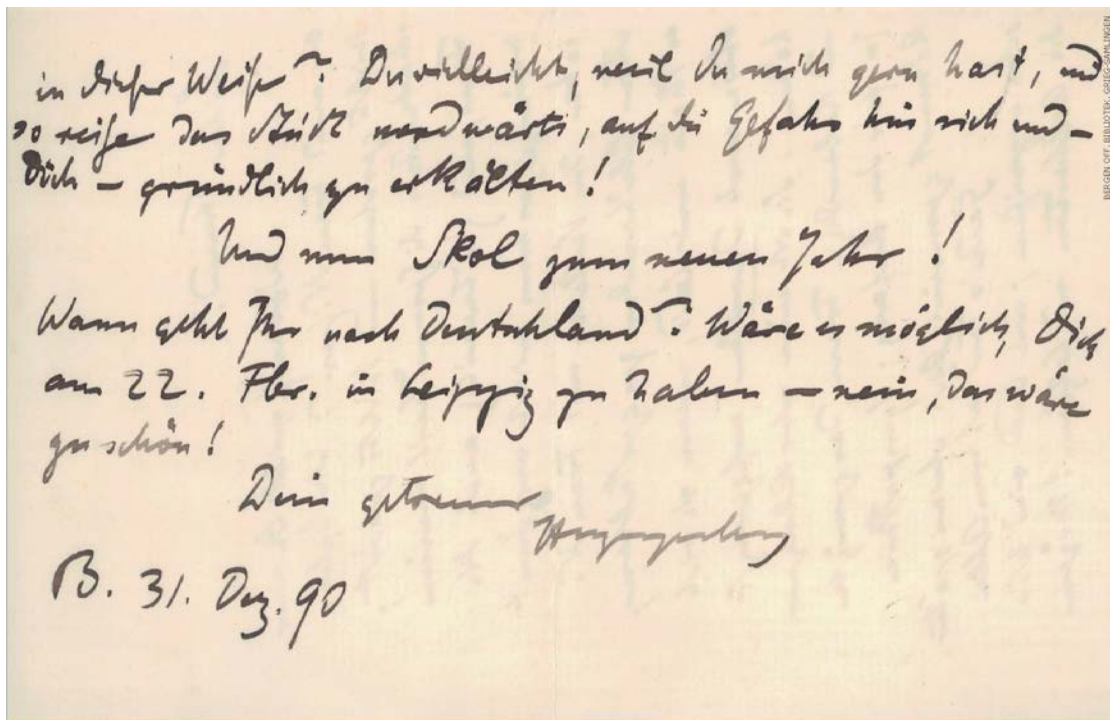 in dieser Weise? Du vielleicht, weil Du mich gern hast, und
so reise das Stück nordwärts, auf die Gefahr hin sich und –
Dich – gründlich zu erkälten!
Und nun Skol zum neuen Jahr!
Wann geht Ihr nach Deutschland? Wäre es möglich, Dich
am 22. Fbr. in Leipzig zu haben – nein, das wäre
zu schön!
Dein getreuer
Herzogenberg
B. 31. Dez. 90
BERGEN OFF. BIBLIOTEK, GRIEG-SAMLINGEN